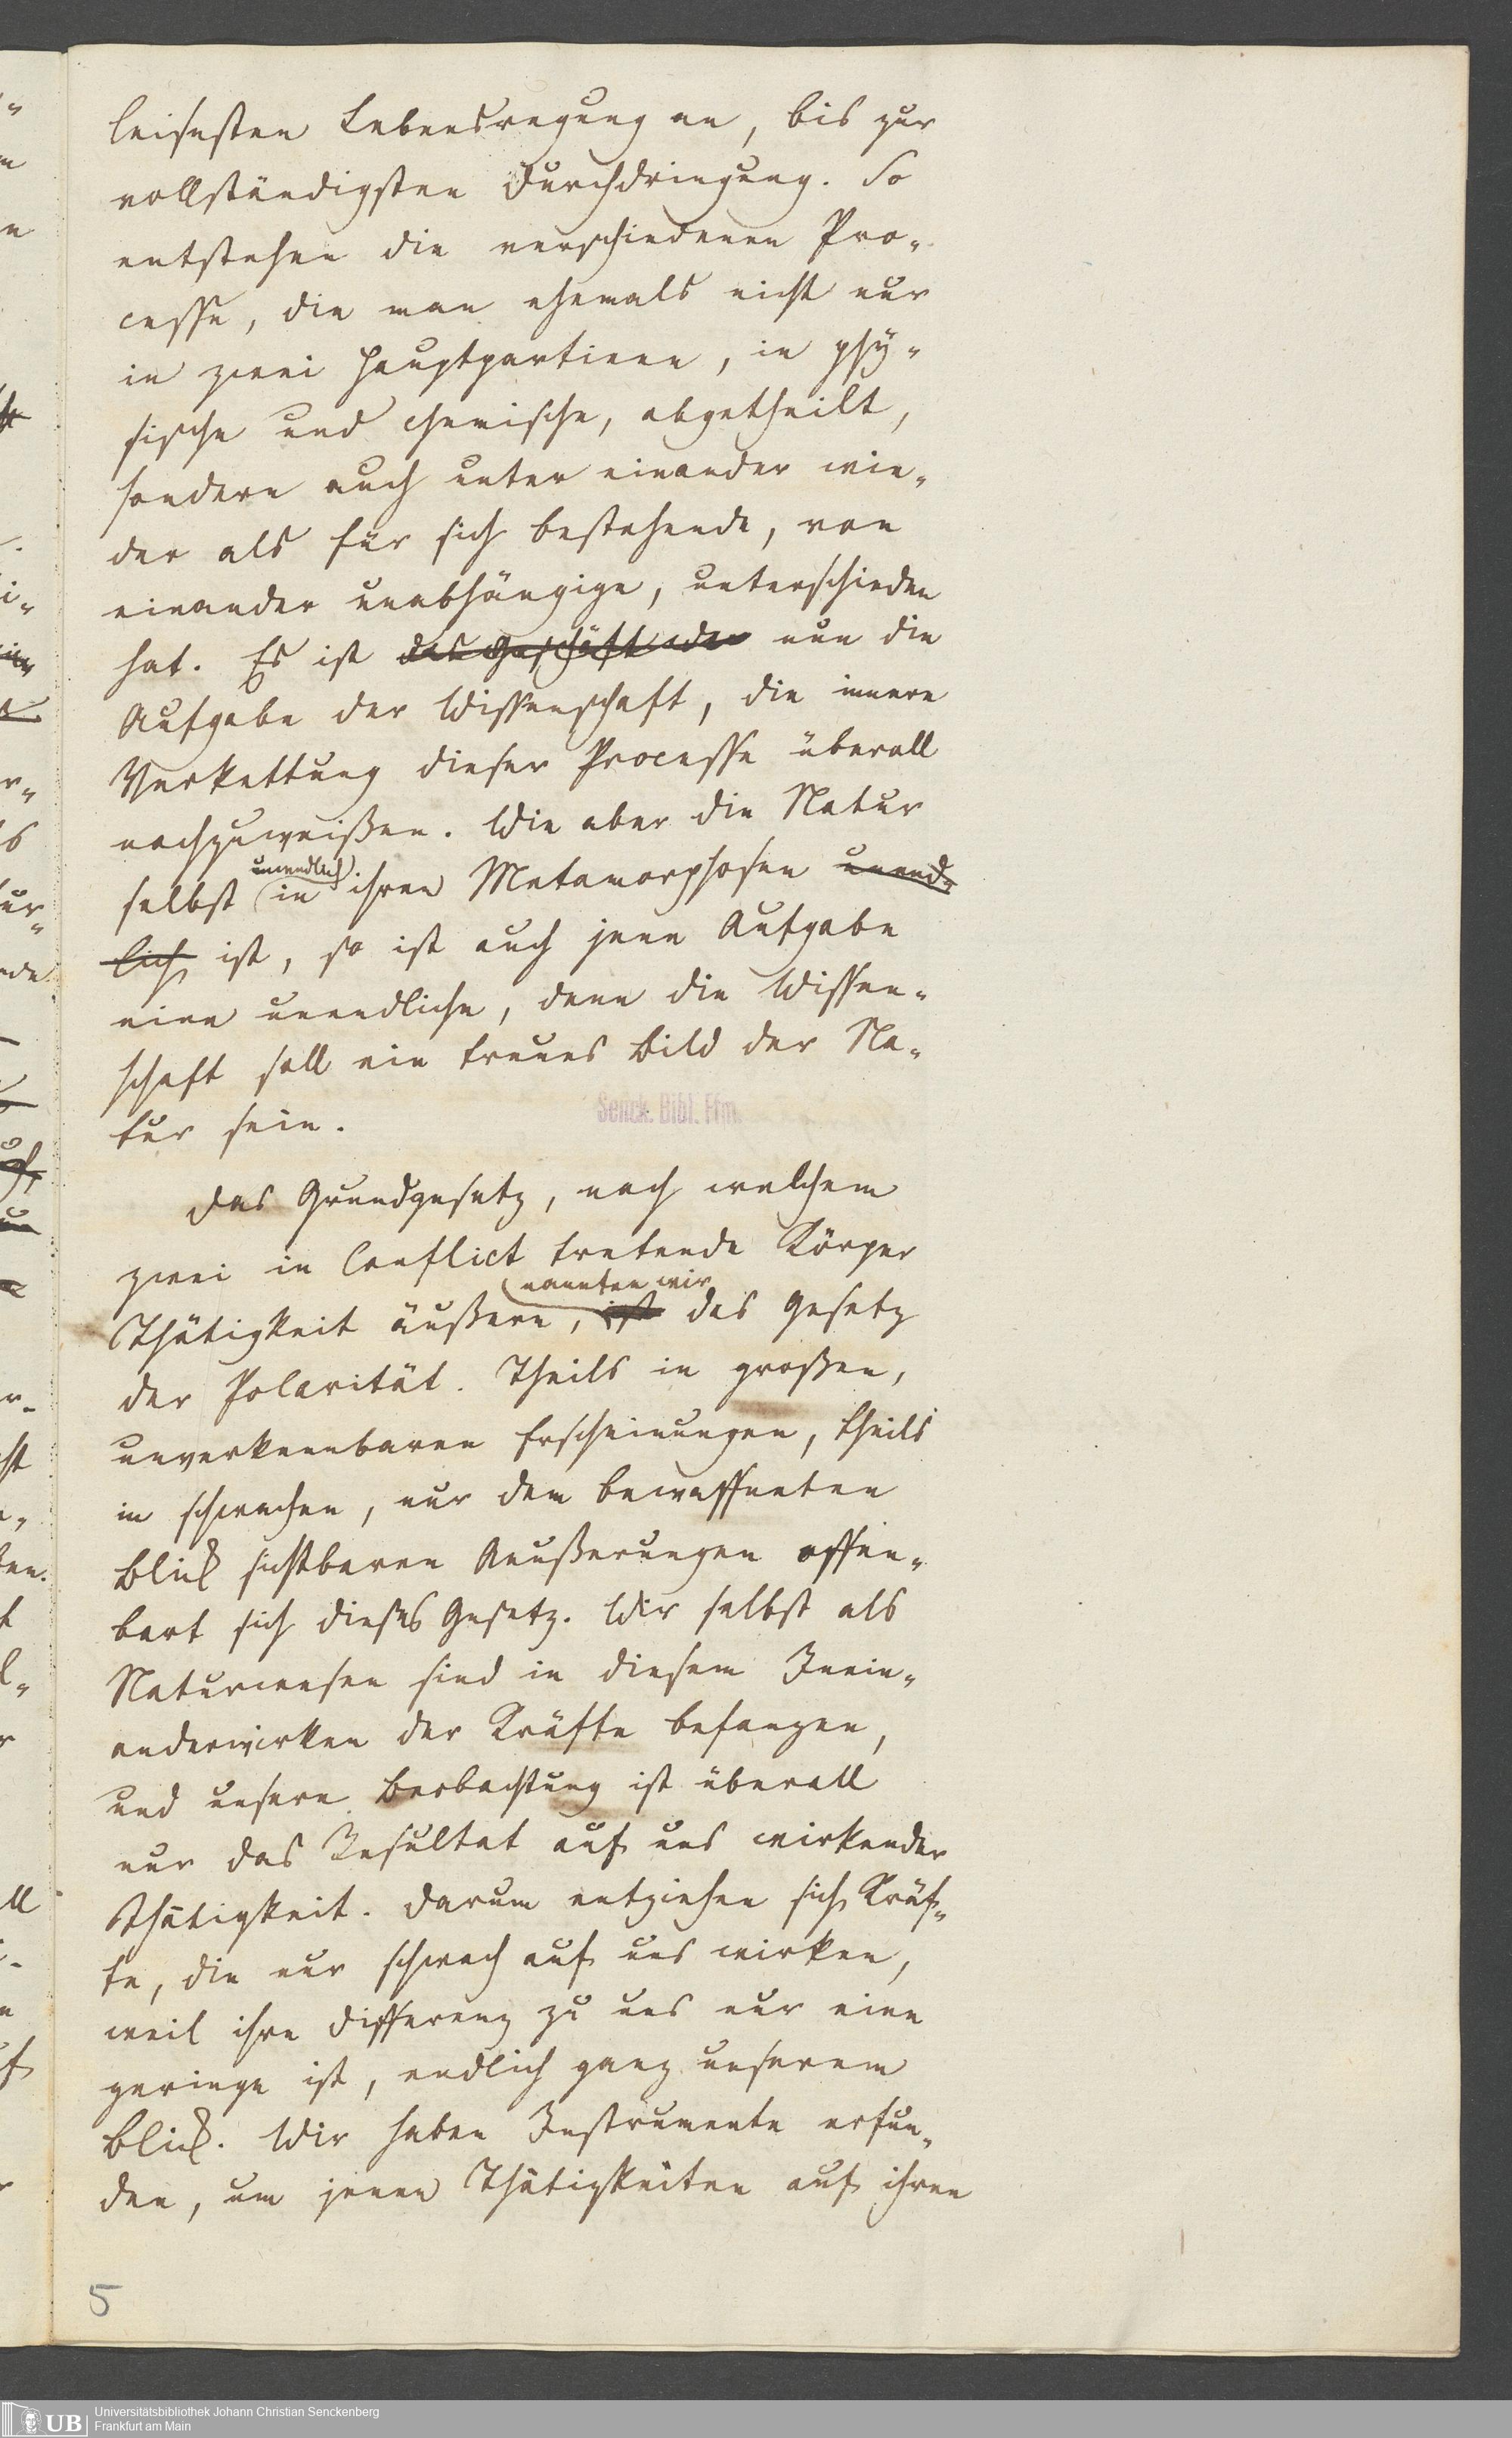 leisesten Lebensregung an, bis zur
vollständigsten Durchdringung. So
entstehen die verschiedenen Pro-
cesse, die man ehemals nicht nur
in zwei Hauptpartieen, in phy-
sische und chemische, abgetheilt,
sondern auch unter einander wie-
der als für sich bestehende, von
einander unabhängige, unterschieden
hat. Es ist das Geschäft der nun die
Aufgabe der Wissenschaft, die innere
Verkettung dieser Processe überall
nachzuweißen. Wie aber die Natur
unendlich
selbst in ihren Metamorphosen unend-
lich ist, so ist auch jene Aufgabe
eine unendliche, denn die Wissen-
schaft soll ein treues Bild der Na-
tur sein.
Senck. Bibl. Ffm.
Das Grundgesetz, nach welchem
zwei in Conflict tretende Körper
nannten wir
Thätigkeit äußern, ist das Gesetz
der Polarität. Theils in großen,
unverkennbaren Erscheinungen, theils
in schwachen, nur dem bewaffneten
Blick sichtbaren Aeußerungen offen-
bart sich dieses Gesetz. Wir selbst als
Naturwesen sind in diesem Inein-
anderwirken der Kräfte befangen,
und unsere Beobachtung ist überall
nur das Resultat auf uns wirkender
Thätigkeit. Darum entziehen sich Kräf-
te, die nur schwach auf uns wirken,
weil ihre Differenz zu uns nur eine
geringe ist, endlich ganz unserem
Blick. Wir haben Instrumente erfun-
den, um jenen Thätigkeiten auf ihren
5
UB
Universitätsbibliothek Johann Christian Senckenberg
Frankfurt am Main